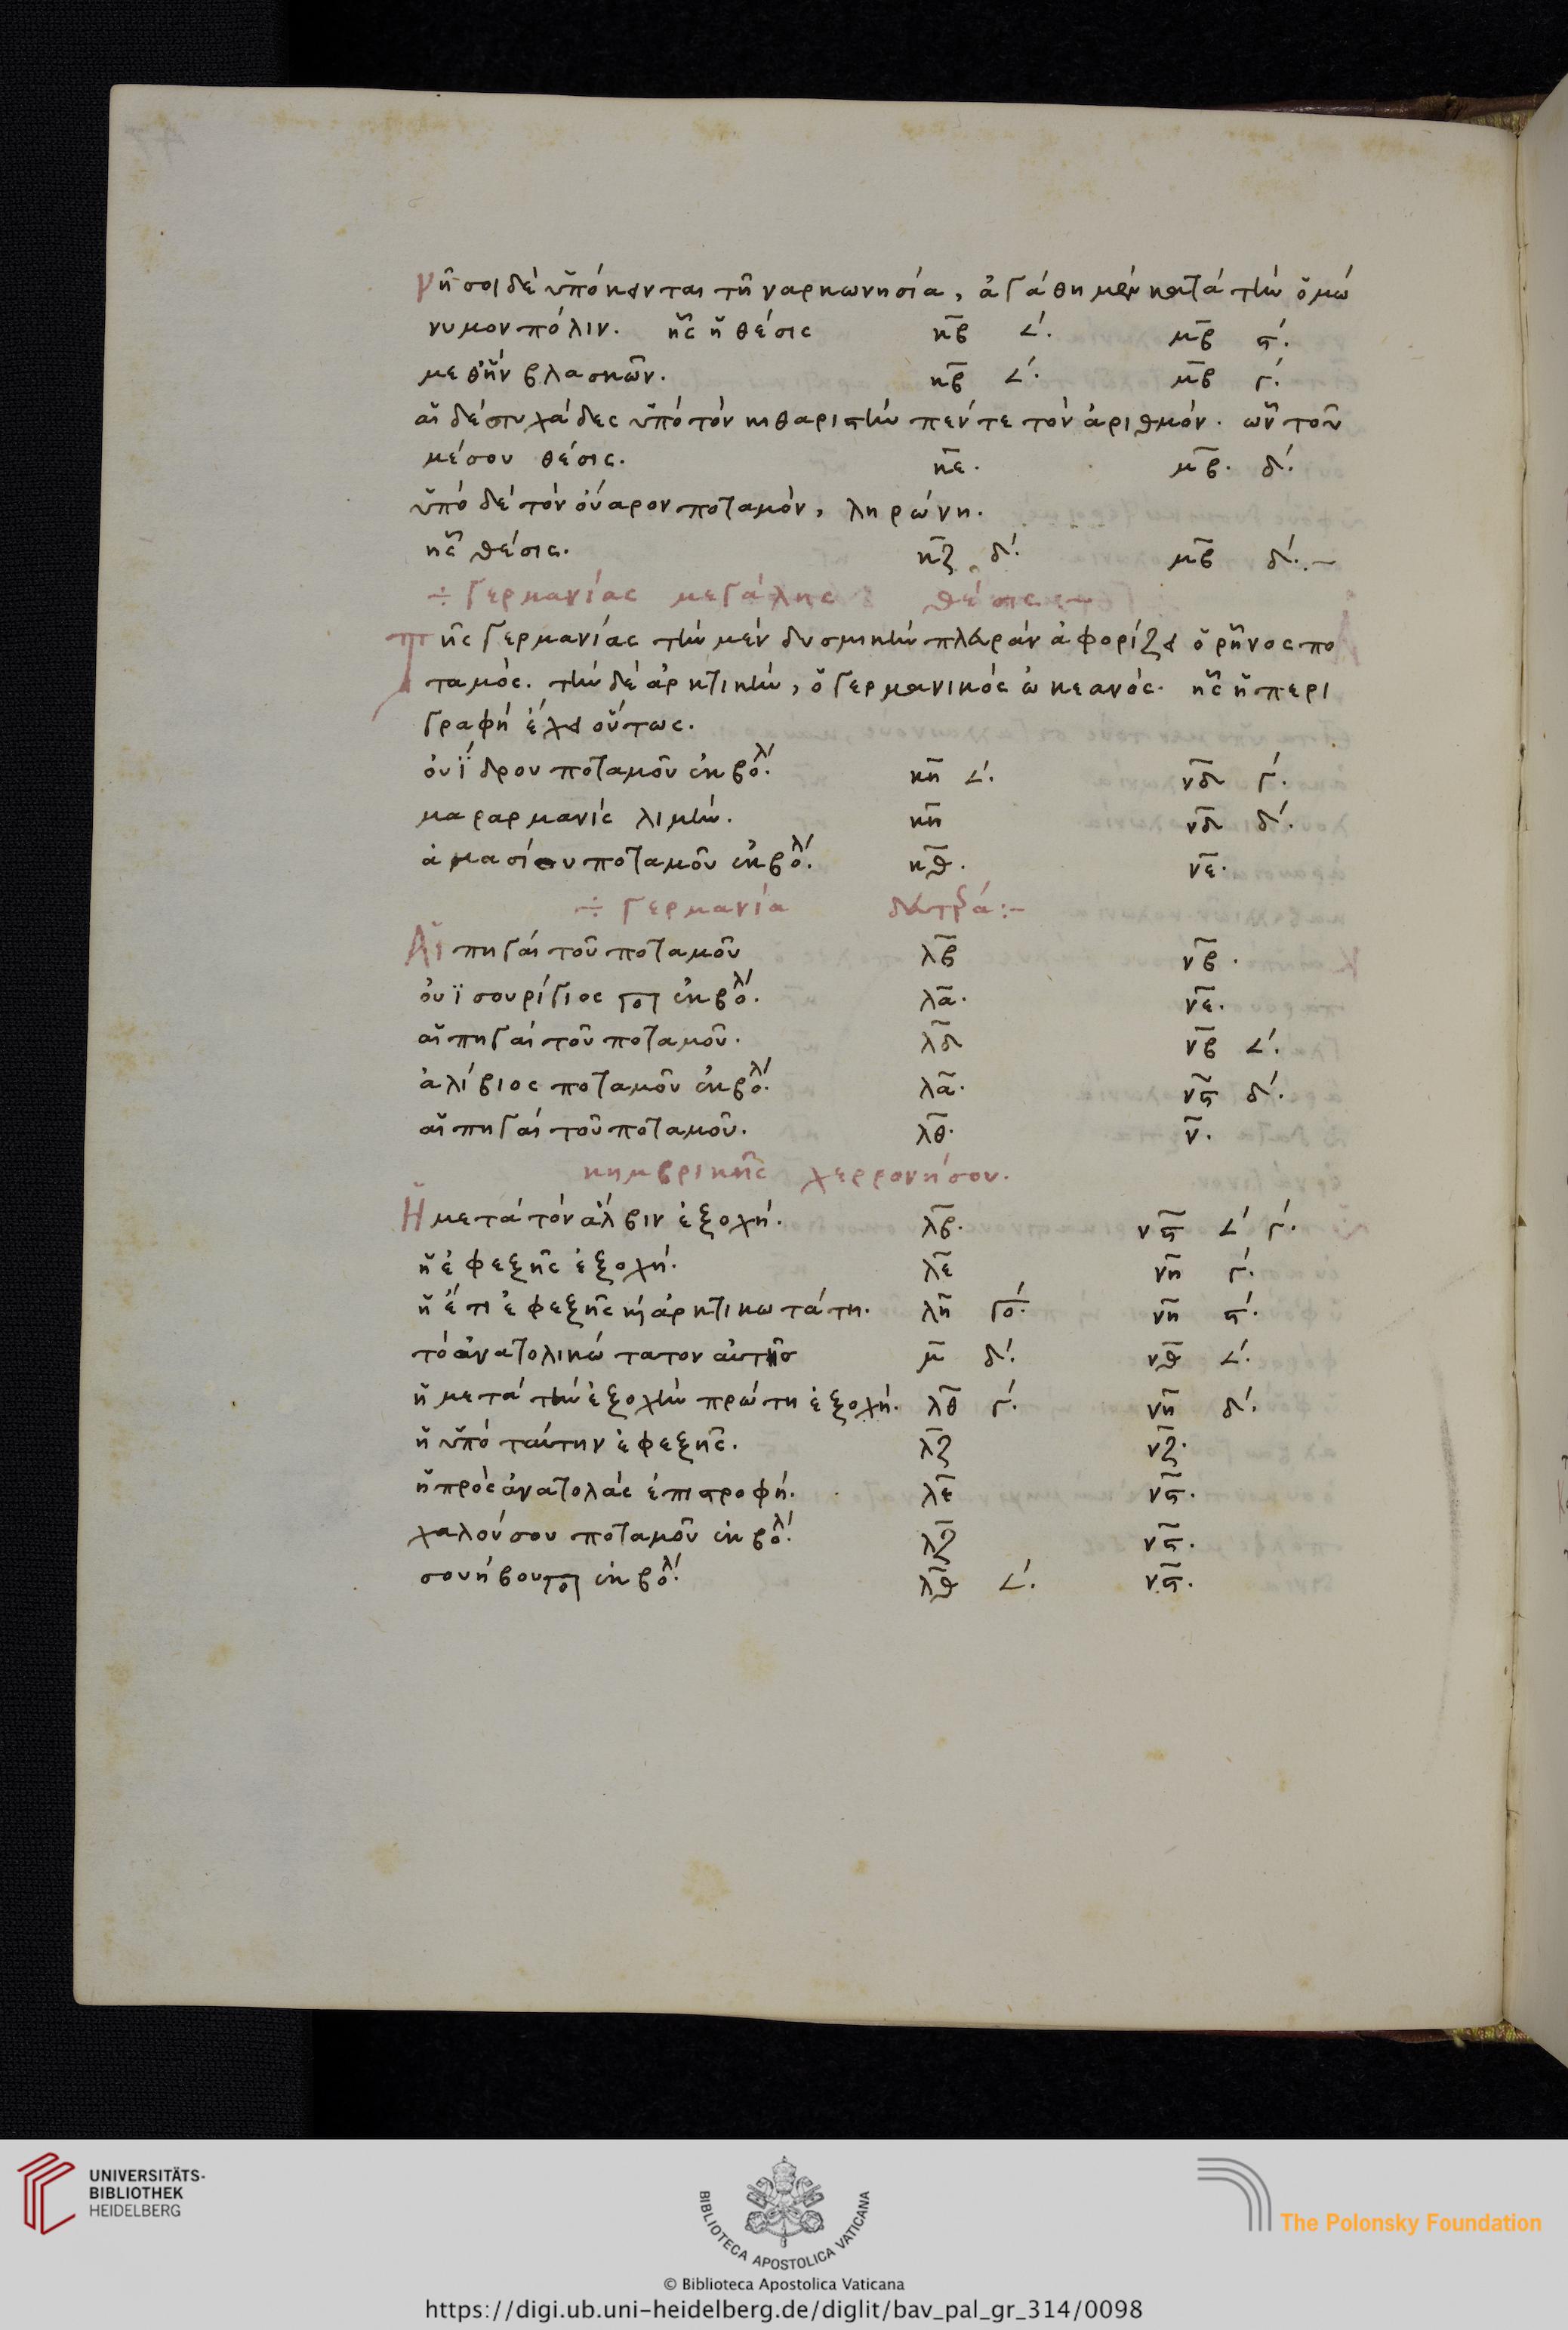 νῆσοι δὲ ὑπόκεινται τῆ ναρκωνησία, ἀγάθη μὲν κατὰ τὴν ὁμώ
νυμον πόλιν. ἧς ἡ θέσις κβ ∠΄. μβ ϛ΄.
μεθ ἣν βλασκῶν. κβ ∠΄. μβ γ΄.
αἱ δὲ στυχάδες ὑπὸ τὸν κιθαριστὴν πέντε τὸν ἀριθμόν. ὧν τοῦ
μέσου θέσις. κε. μβ. δ΄.
ὑπὸ δὲ τὸν ὀύαρον ποταμὸν, ληρώνη.
ἧς θέσις. κζ δ΄. μβ δ΄.
÷ Γερμανίας μεγάλης θέσις
Τῆς Γερμανίας τὴν μὲν δυσμικὴν πλευρὰν ἀφορίζει ὁ ῥῆνος πο
ταμός. τὴν δὲ ἀρκτικὴν, ὁ Γερμανικὸς ὠκεανός. ἧς ἡ περι
γραφὴ ἔχει οὕτως.
ὀυΐδρου ποταμοῦ ἐκβολ΄. κη ∠΄. νδ γ΄.
μαραρμανὶς λιμήν. κη νδ δ΄.
ἀμασίου ποταμοῦ ἐκβολ΄. κθ. νε.
÷ Γερμανία δευτέρα:–
Αἱ πηγαὶ τοῦ ποταμοῦ λβ νβ.
ὀυϊσουρίγιος ποτ ἐκβολ΄. λα. νε.
αἱ πηγαὶ τοῦ ποταμοῦ. λδ νβ ∠΄.
ἀλίβιος ποταμοῦ ἐκβολ΄. λα. νϛ δ΄.
αἱ πηγαὶ τοῦ ποταμοῦ. λθ. ν.
κημβρικῆς χερρονήσου.
Ἡ μετὰ τὸν ἄλβιν ἐξοχή. λβ. νϛ ∠΄ γ΄.
ἡ ἐφεξῆς ἐξοχή. λε νη γ΄.
ἡ ἔτι ἐφεξῆς κὴ ἀρκτικωτάτη. λη γο΄. νη ϛ΄.
τὸ ἀνατολικώτατον ἀυτῆσ μ δ΄. νθ ∠΄.
ἡ μετὰ τὴν ἐξοχὴν πρώτη ἐξοχή. λθ γ΄. νη δ΄.
ἡ ὑπὸ ταύτην ἐφεξῆς. λζ νζ.
ἡ πρὸς ἀνατολὰς ἐπιστροφή. λε νϛ.
χαλούσου ποταμοῦ ἐκβολ΄. λζ νϛ.
σουήβου ποτ ἐκβολ΄. λθ ∠΄. νϛ.
UNIVERSITÄTS-
BIBLIOTHEK
HEIDELBERG
BIBLIOTECA APOSTOLICA VATICANA
The Polonsky Foundation
© Biblioteca Apostolica Vaticana
https://digi.ub.uni-heidelberg.de/diglit/bav_pal_gr_314/0098